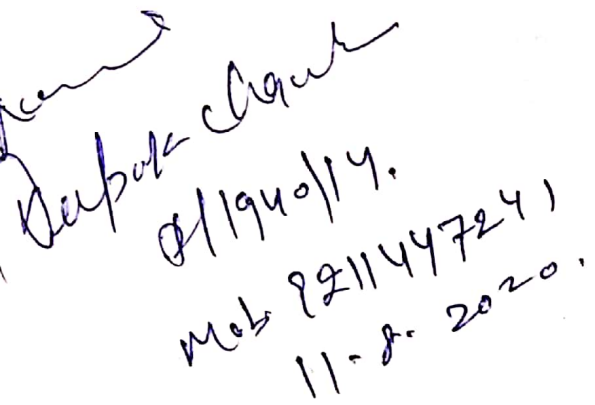 Deepak Chauh
D/1940/14.
Mob 8211447241
11-8-2020.